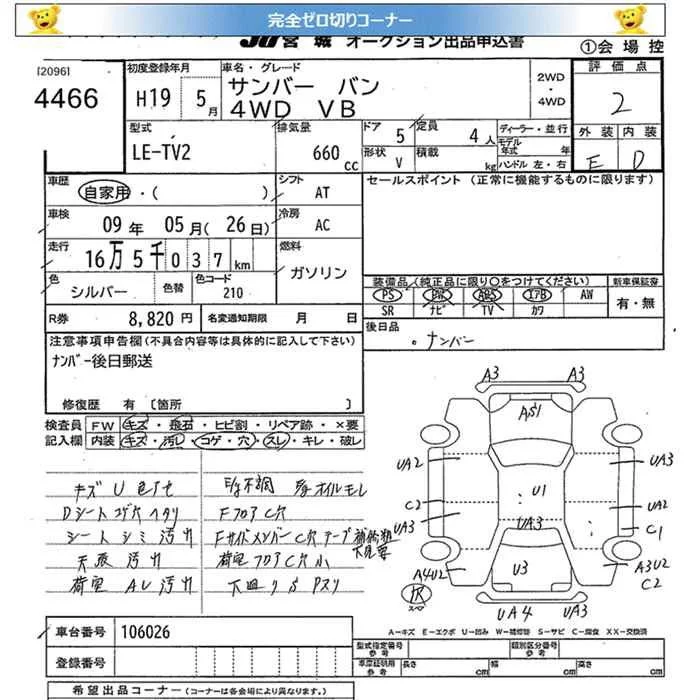 完全ゼロ切りコーナー
JU宮城 オークション出品申込書
①会場控
[2096]
4466
初度登録年月
H19 5月
車名・グレード
サンバー バン
4WD VB
2WD
・
4WD
評価点
2
外装 内装
E D
型式
LE-TV2
排気量
660 cc
ドア 5
形状 V
定員 4人
積載 kg
ディーラー・並行
モデル年式 年
ハンドル 左・右
車歴
自家用・( )
シフト
AT
セールスポイント (正常に機能するものに限ります)
車検
09年 05月(26日)
冷房
AC
走行
16万5千037km
燃料
ガソリン
色
シルバー
色替
色コード
210
装備品(純正品に限り○をつけてください)
PS PW ABS エアB AW
SR ナビ TV カワ
新車保証書
有・無
R券 8,820円
名変通知期限 月 日
後日品
ナンバー
注意事項申告欄(不具合内容等は具体的に記入して下さい)
ナンバー後日郵送
修復歴 有 [箇所 ]
検査員
記入欄
FW キズ・飛石・ヒビ割・リペア跡・×要
内装 キズ・汚レ・コゲ・穴・スレ・キレ・破レ
キズ U 色アセ
Dシート コゲ穴 ヘタリ
シート シミ 汚れ
天張 汚れ
荷室 AU 汚れ
E/g不調 E/gオイルモレ
Fフロア C穴
Fサイドメンバー C穴 テープ補修類
下見要
荷室フロア C穴 小
下廻り S Pスリ
A3 A3
AS1
UA2 UA3
U1
C2 UA2
UA3 UA3 C1
U3
A4U2 A3U2
C2
UA4 UA3
スペ
A-キズ E-エクボ U-凹み W-補修跡 S-サビ C-腐食 XX-交換済
車台番号 106026
登録番号
型式指定番号
参考
類別区分番号
参考
車庫証明用
参考
長さ cm
幅 cm
高さ cm
希望出品コーナー (コーナーは各会場により異なります。)